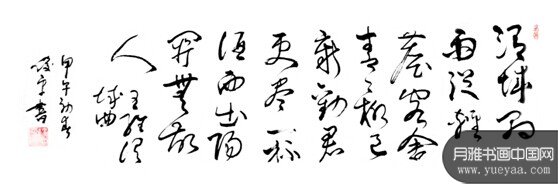 渭城朝
雨浥輕
塵客舍
青々柳色
新勸君
更盡一杯
酒西出陽
關無故
人
王維渭
城曲
甲午初春
書
月雅书画中国网
www.yueyaa.com